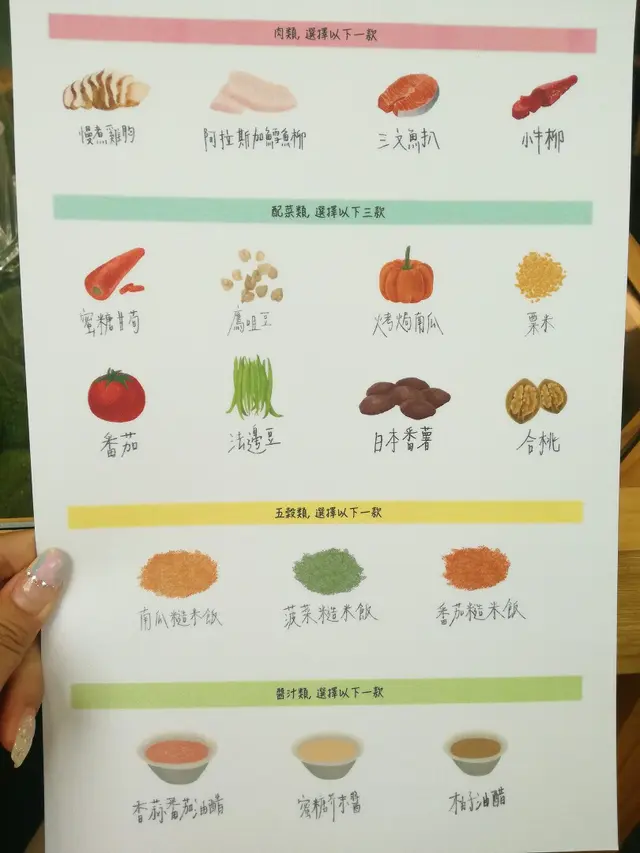 肉類, 選擇以下一款
慢煮雞胸 阿拉斯加鱈魚柳 三文魚扒 小牛柳
配菜類, 選擇以下三款
蜜糖甘荀 鷹咀豆 烤焗南瓜 粟米
番茄 法邊豆 日本番薯 合桃
五穀類, 選擇以下一款
南瓜糙米飯 菠菜糙米飯 番茄糙米飯
醬汁類, 選擇以下一款
香蒜番茄油醋 蜜糖芥末醬 柚子油醋